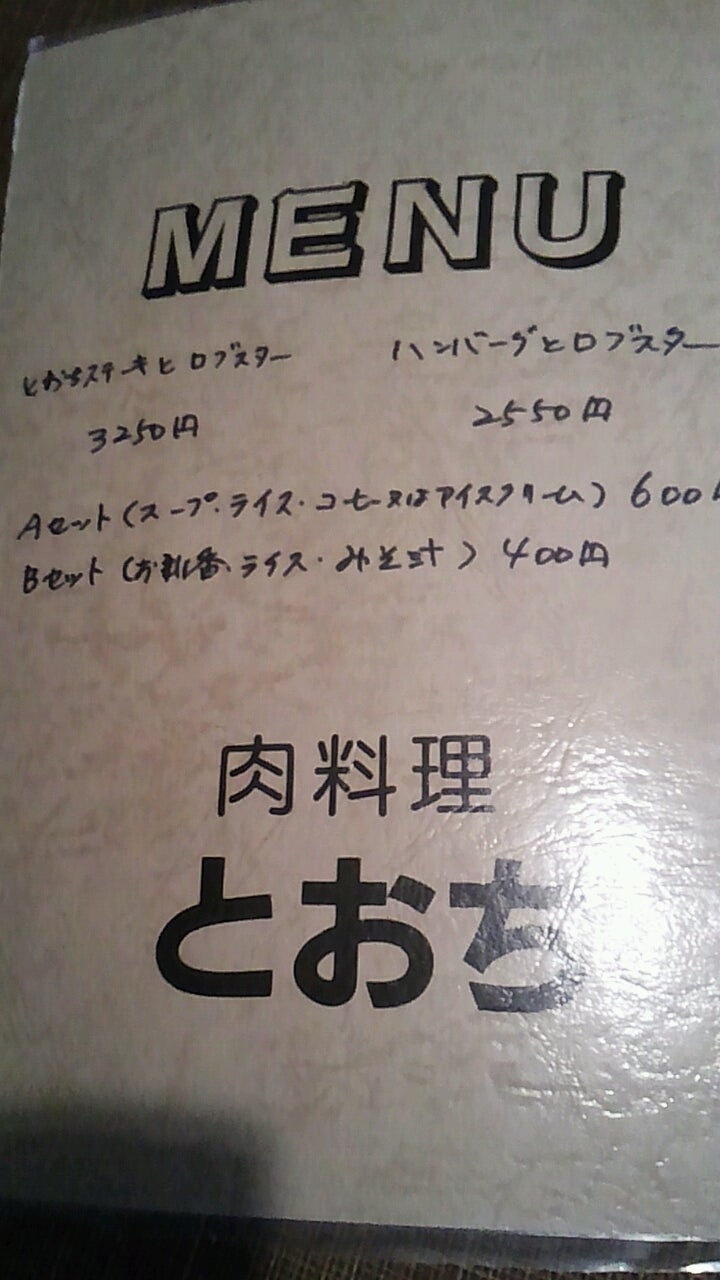 MENU
とおちステーキとロブスター ハンバーグとロブスター
3250円 2550円
Aセット(スープ・ライス・コーヒー又はアイスクリーム) 600円
Bセット(お新香・ライス・みそ汁) 400円
肉料理
とおち